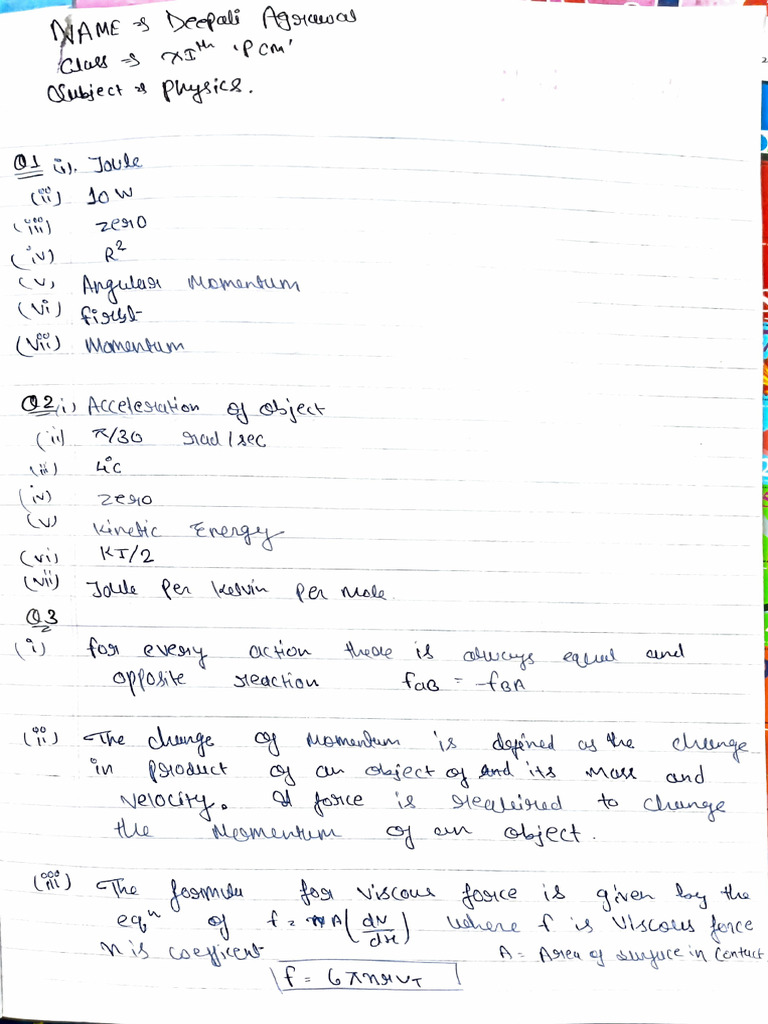 NAME → Deepali Agrawal
Class → XIth 'PCM'
Subject → Physics.
Q1 (i). Joule
(ii) 10 W
(iii) zero
(iv) R²
(v) Angular Momentum
(vi) first
(vii) Momentum
Q2 (i) Acceleration of object
(ii) π/30 rad/sec
(iii) 4°c
(iv) zero
(v) Kinetic Energy
(vi) KT/2
(vii) Joule per kelvin per mole.
Q3
(i) for every action there is always equal and
opposite reaction fAB = -fBA
(ii) The change of momentum is defined as the change
in product of an object of and its mass and
velocity. A force is required to change
the momentum of an object.
(iii) The formula for viscous force is given by the
eqⁿ of f = η A (dv/dx) where f is viscous force
η is coefficent A = Area of surface in contact
f = 6πηrvT